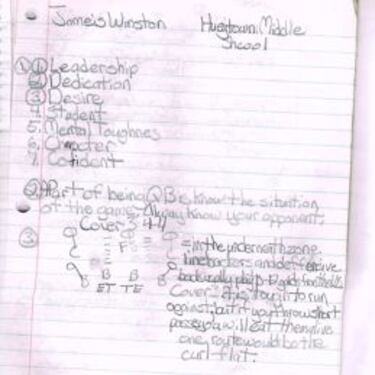 Jameis Winston Hueytown Middle
Shcool
① ① Leadership
② Dedication
③ Desire
4. Student
5. Mental Toughnes
6. Chracter
7. Cofident
② Part of being QB is know the situation
of the game. Alway know your opponent.
③ Cover
F = in the underneath zone
linebackers and deffensive
B B B
ET TE
Cover to run
against, but if you throw short
passes you will eat them alive
one route would be the
curl flat.